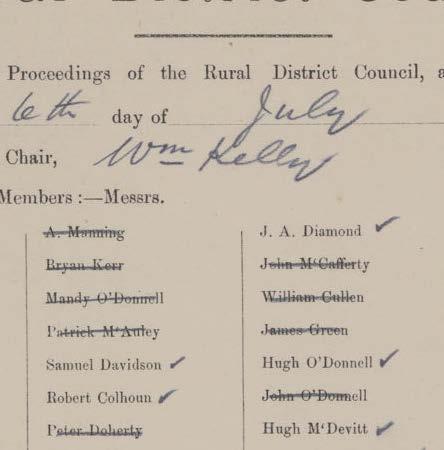 Proceedings of the Rural District Council, a
6th day of July
Chair, Wm Kelly
Members :—Messrs.
A. Manning
Bryan Kerr
Mandy O'Donnell
Patrick M'Auley
Samuel Davidson ✓
Robert Colhoun ✓
Peter Doherty
J. A. Diamond ✓
John M'Cafferty
William Cullen
James Green
Hugh O'Donnell ✓
John O'Donnell
Hugh M'Devitt ✓